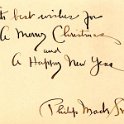 best wishes for
A Merry Christmas
and
A Happy New Year
Philip